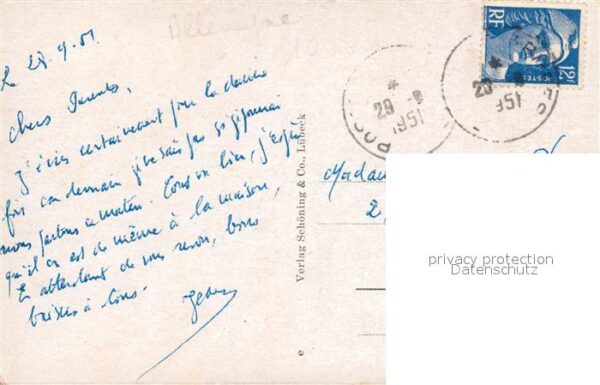 Allemagne
10
Le 28.9.51
Chers Parents,
J'écris certainement pour la dernière
fois car demain je ne sais pas si j'pourrai
nous partons ce matin. Tout va bien, j'espère
qu'il en est de même à la maison,
En attendant de vous revoir, bons
baisers à tous.
Verlag Schöning & Co., Lübeck
e
RF
POSTES
12F
29 -9
1951
29 -9
1951
Madame
2,
privacy protection
Datenschutz